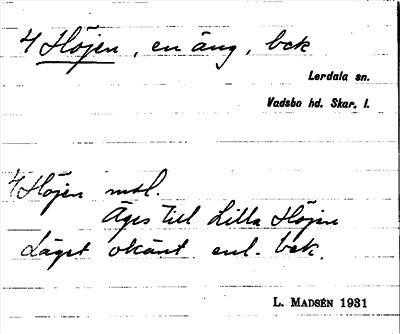 4 Höjen, en äng, bek
Lerdala sn.
Vadsbo hd. Skar. l.
4 Höjen msl.
Äges till Lilla Höjen
Läget okänt enl. bek.
L. MADSÉN 1931